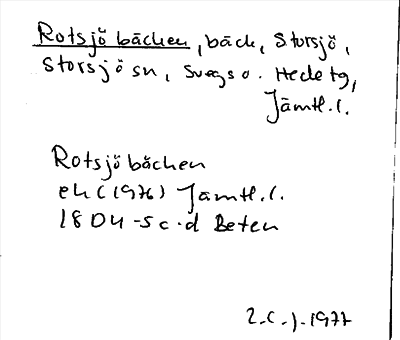 Rotsjöbäcken, bäck, Storsjö,
Storsjö sn, Svegs o. Hede tg,
Jämtl. l.
Rotsjöbäcken
ek (1976) Jämtl. l.
18 D4-5 c-d Beten
1977